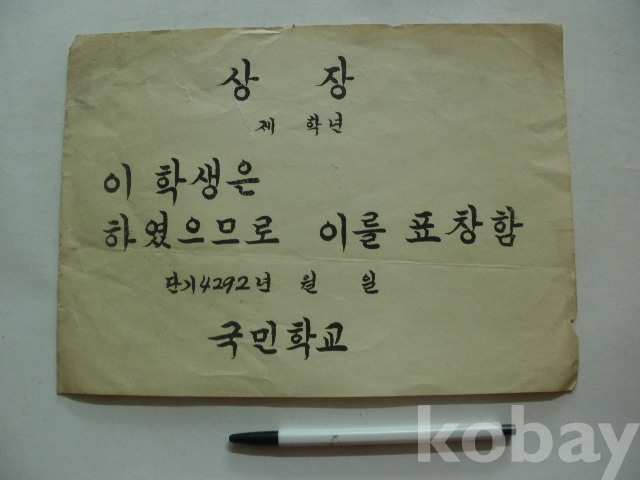 상 장
제 학년
이 학생은
하였으므로 이를 표창함
단기4292년 월 일
국민학교
kobay